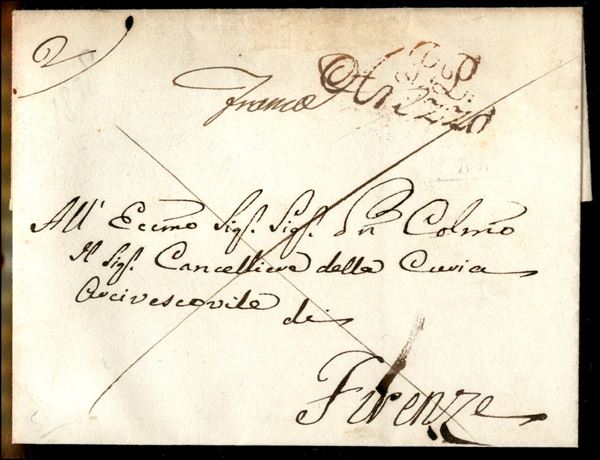 2
P.P.
Franca Arezzo
All' Eccmo Sigr. Sigr. Pn Colmo
Il Sigr. Cancelliere della Curia
Arcivescovile
di
Firenze